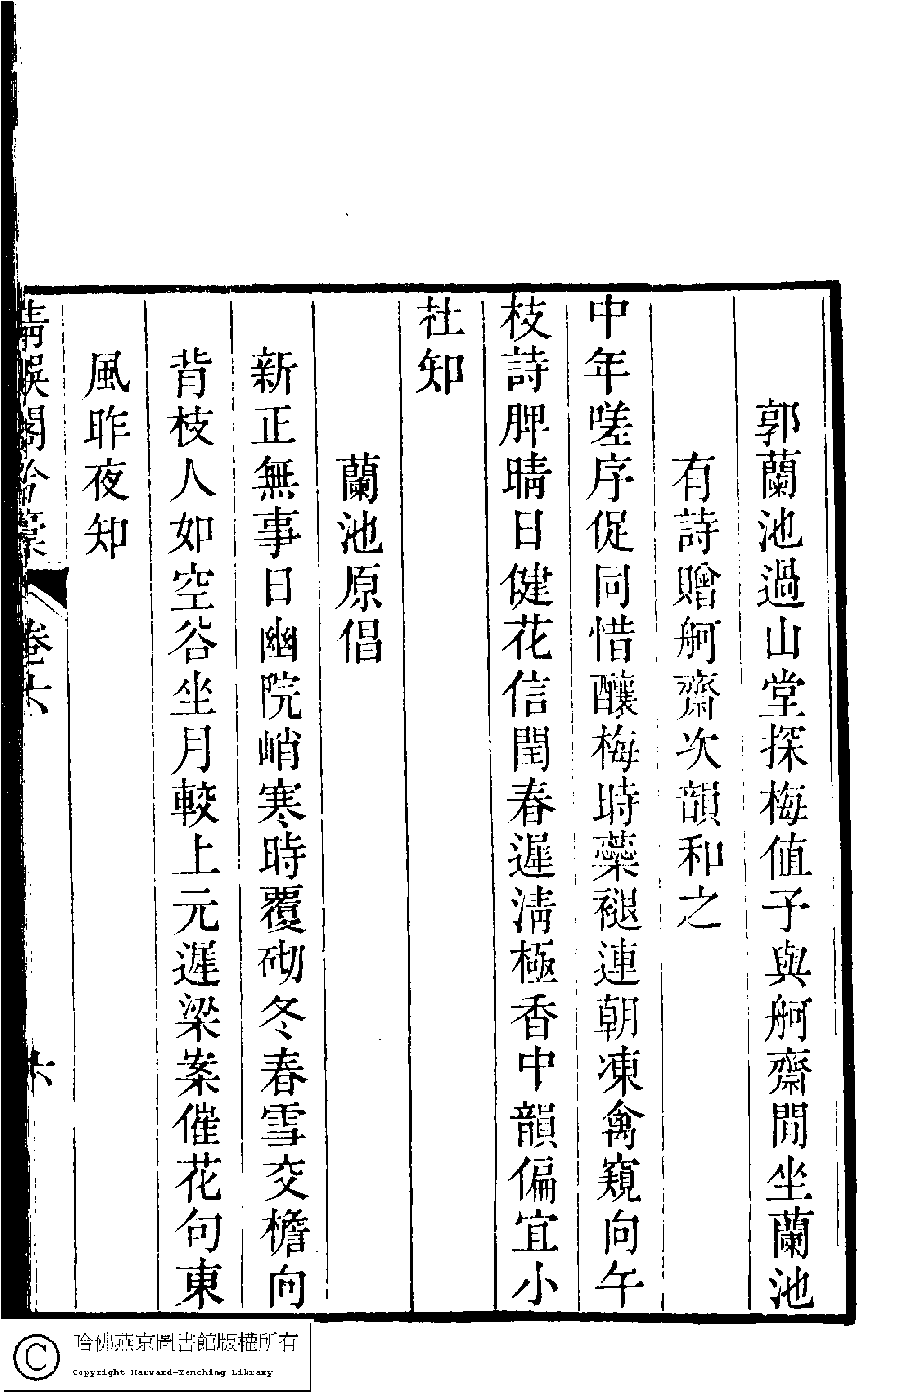 郭蘭池過山堂探梅值予與舸齋閒坐蘭池
有詩贈舸齋次韻和之
中年嗟序促同惜釀梅時藥褪連朝凍禽窺向午
枝詩脾晴日健花信閏春遲淸極香中韻偏宜小
社知
蘭池原倡
新正無事日幽院峭寒時覆砌冬春雪交檐向
背枝人如空谷坐月較上元遲梁案催花句東
風昨夜知
卷十
六
哈佛燕京圖書館版權所有
Copyright Harvard-Yenching Library